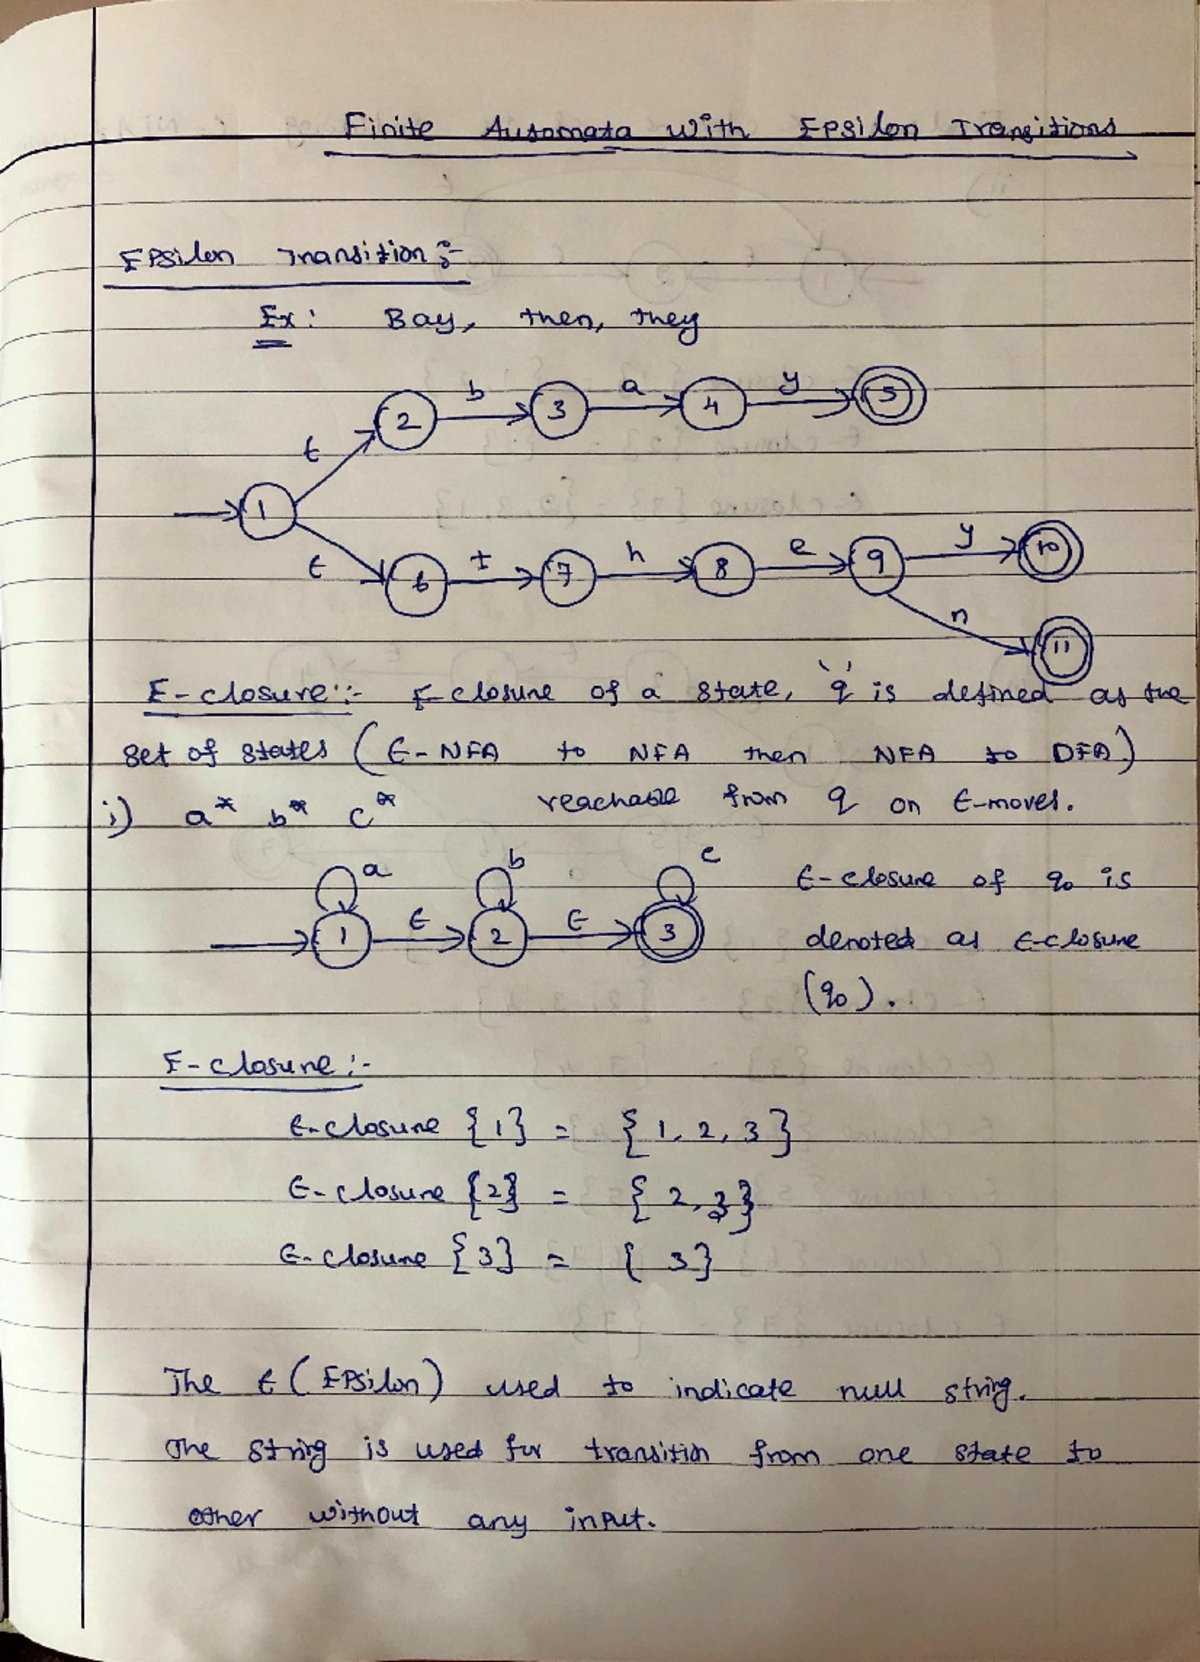 Finite Automata with Epsilon Transitions
Epsilon Transition :-
Ex : Bay, then, they
b a y
2 3 4 5
ε
1
ε t h e y
6 7 8 9 10
n
11
ε-closure :- ε-closure of a state, 'q' is defined as the
set of states ( ε-NFA to NFA then NFA to DFA )
i) a* b* c* reachable from q on ε-moves.
a b c
ε-closure of q0 is
1 ε 2 ε 3
denoted as ε-closure
(q0).
ε-closure :-
ε-closure {1} = { 1, 2, 3 }
ε-closure {2} = { 2, 3 }
ε-closure {3} = { 3 }
The ε ( Epsilon ) used to indicate null string.
The string is used for transition from one state to
other without any input.